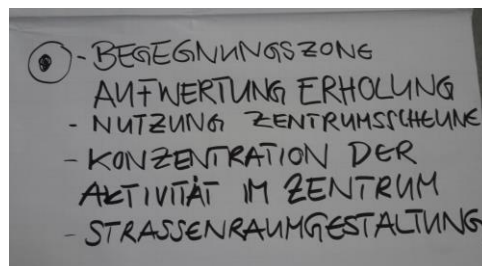 - BEGEGNUNGSZONE
AUFWERTUNG ERHOLUNG
- NUTZUNG ZENTRUMSSCHEUNE
- KONZENTRATION DER
AKTIVITÄT IM ZENTRUM
- STRASSENRAUMGESTALTUNG